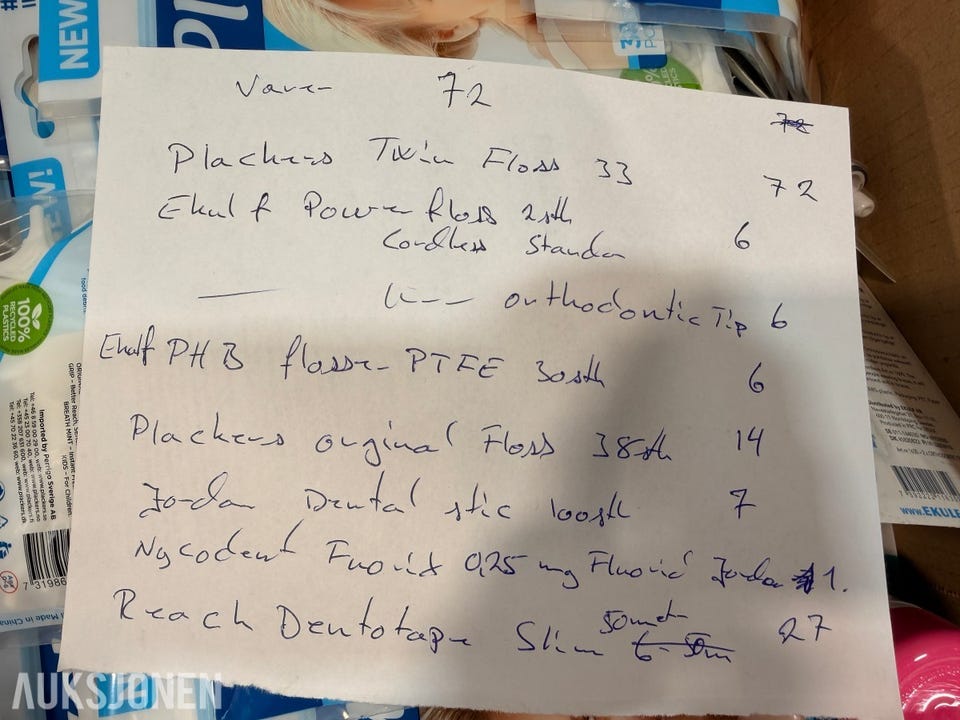 NEW!
Varer 72
72
Plackers Twin Floss 33 72
Ekulf Powerfloss 2stk
Cordless Standar 6
orthodontic Tip 6
Ekulf PHB flosser PTFE 30stk 6
Plackers orginal Floss 38stk 14
Jordan Dental stic 100stk 7
Nycodent Fuorid 0,25 mg Fluorid Jordan 1.
50meter
Reach Dentotape Slim 6-50m 27
100%
RECYCLED
PLASTICS
Imported by Perrigo Sweden AB
Made in China
www.EKULF
AUKSJONEN